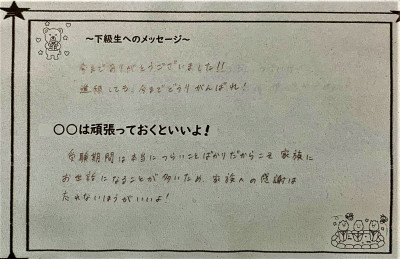 ～下級生へのメッセージ～
今までありがとうございました!!
進級しても、今までどうりがんばれ!
〇〇は頑張っておくといいよ!
受験期間は本当につらいことばかりだからこそ家族に
お世話になることが多いため、家族への感謝は
忘れないほうがいいよ!